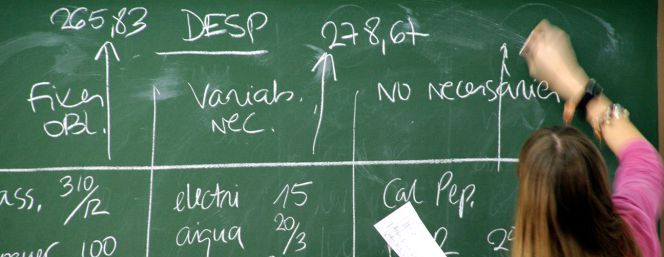 265,83 DESP 278,67
Fixes Variab. No necessàries
OBL. NEC.
ass. 310/12 electri 15 Cal Pep.
aigua 20/3
100 2